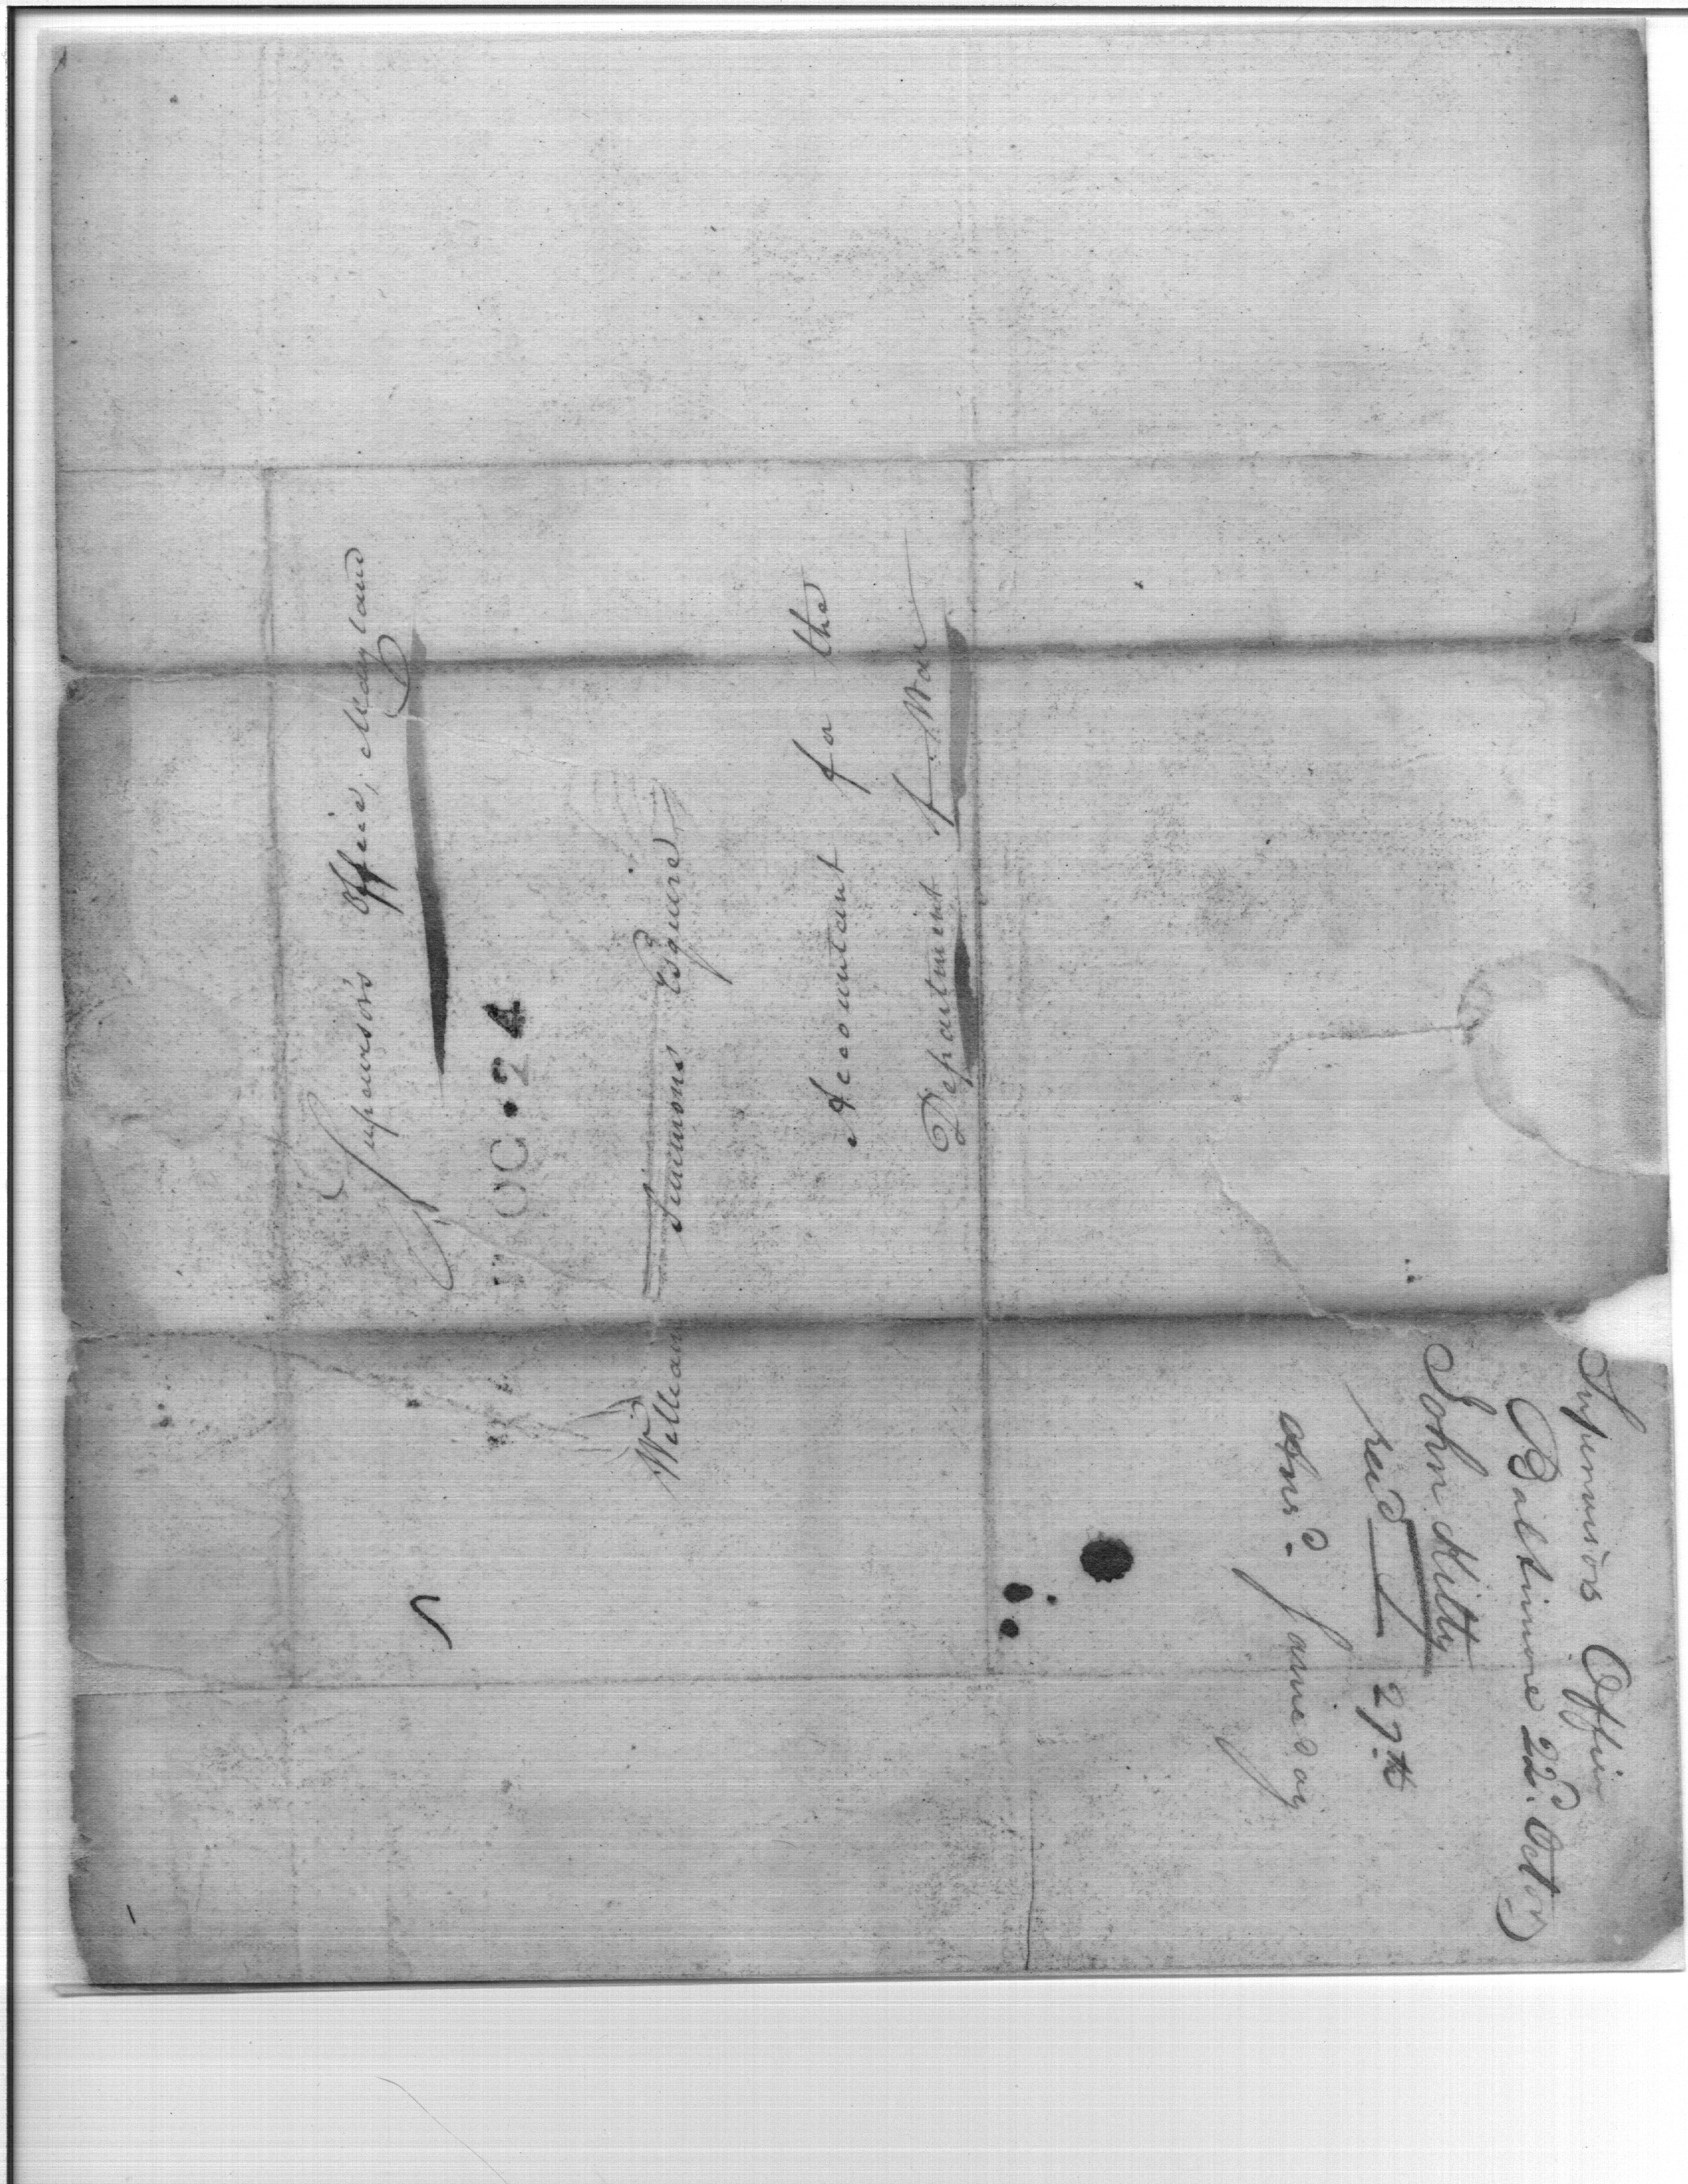 Supervisor's Office, Maryland
OC • 24
William Simmons Esquire
Accountant for the
Department of War
Supervisors Office
Baltimore 22d. Oct
John Kilty
recd 27th
Ansd. same day